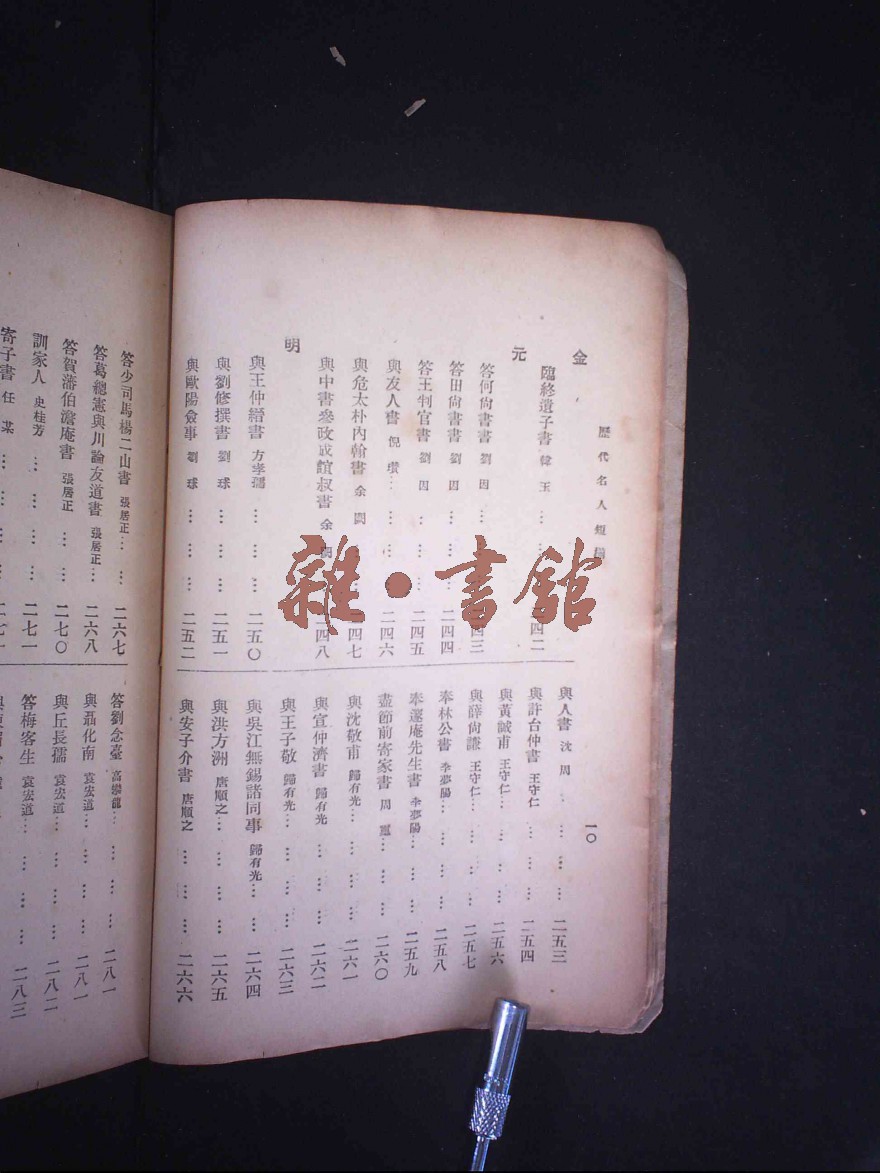 歷代名人短牘
一〇
金
臨終遺子書 韓玉 … … 二四二
元
答何尙書書 劉因 … 二四三
答田尙書書 劉因 … … 二四四
答王判官書 劉因 … … 二四五
與友人書 倪瓚 … … … 二四六
與危太朴內翰書 余闕 … 二四七
與中書參政 誼叔書 余闕 二四八
明
與王仲縉書 方孝孺 … … … 二五〇
與劉修撰書 劉球 … … … 二五一
與歐陽僉事 劉球 … … … 二五二
與人書 沈周 … … … … 二五三
與許台仲書 王守仁 … … … 二五四
與黃誠甫 王守仁 … … … … 二五六
與薛尙謙 王守仁 … … … … 二五七
奉林公書 李夢陽 … … … … 二五八
奉邃庵先生書 李夢陽 … … … 二五九
盡節前寄家書 周 … … … 二六〇
與沈敬甫 歸有光 … … … … 二六一
與宣仲濟書 歸有光 … … … 二六二
與王子敬 歸有光 … … … … 二六三
與吳江無錫諸同事 歸有光 … … 二六四
與洪方洲 唐順之 … … … … 二六五
與安子介書 唐順之 … … … 二六六
答少司馬楊二山書 張居正 … … 二六七
答葛總憲與川論友道書 張居正 … 二六八
答賀藩伯澹庵書 張居正 … … 二七〇
訓家人 史桂芳 … … … … 二七一
寄子書 任某
答劉念臺 高攀龍 … … … … 二八一
與聶化南 袁宏道 … … … … 二八一
與丘長孺 袁宏道 … … … … 二八二
答梅客生 袁宏道 … … … … 二八三
雜·書館